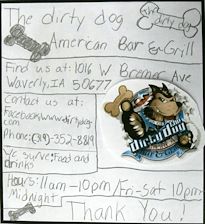 The dirty dog
dirty dog
American Bar & Grill
Find us at: 1016 W Bremer Ave
Waverly, IA 50677
Contact us at:
Facebook www.dirtydog.com
Phone: (319)-352-8819
We serve: Food and
drinks
Hours: 11am-10pm/Fri-Sat 10pm-
midnight
Dirty Dog
Thank You!